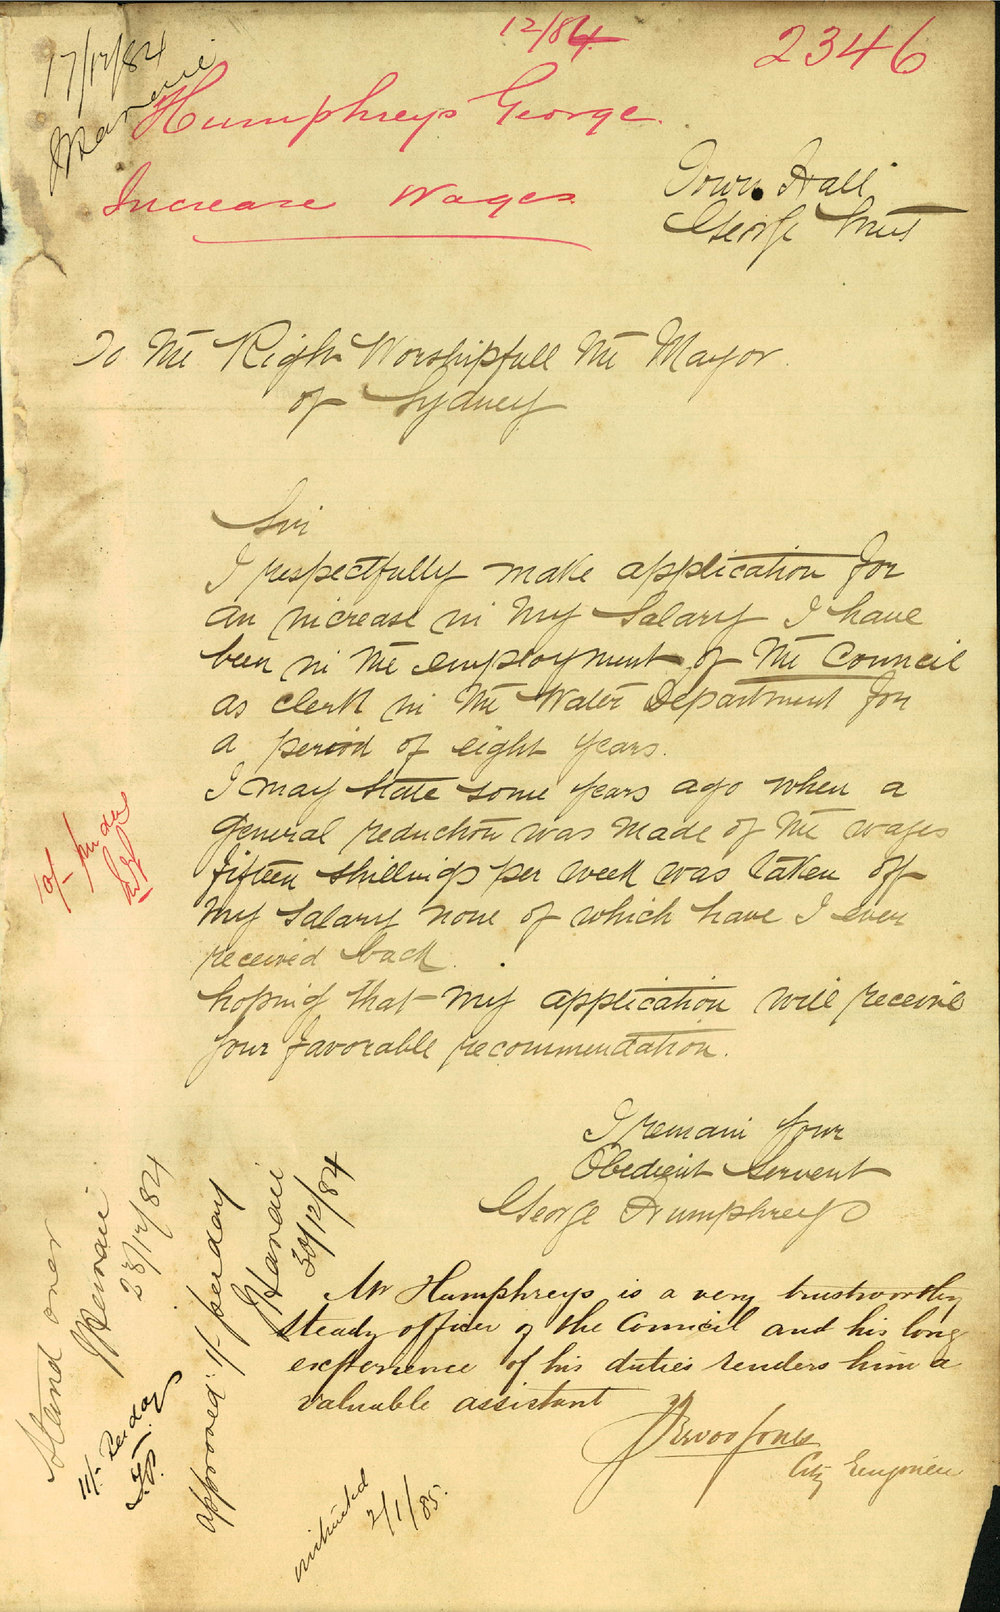 12/84
2346
17/12/84
Humphreys George.
Increase Wages
Town Hall
George Street
To the Right Worshipfull the Mayor
of Sydney
Sir
I respectfully make application for
an increase in my Salary I have
been in the employment of the Council
as clerk in the Water Department for
a period of eight years.
I may state some years ago when a
general reduction was made of the wages
fifteen shillings per week was taken off
my salary none of which have I ever
received back.
hoping that my application will receive
your favorable recommendation.
I remain your
Obedient Servent
George Humphreys
Mr Humphreys is a very trustworthy
steady officer of the Council and his long
experience of his duties renders him a
valuable assistant
City Engineer
10/- per day
Stand over
23/12/84
11/- Per day
approved 11/- per day
30/12/84
instructed
2/1/85.